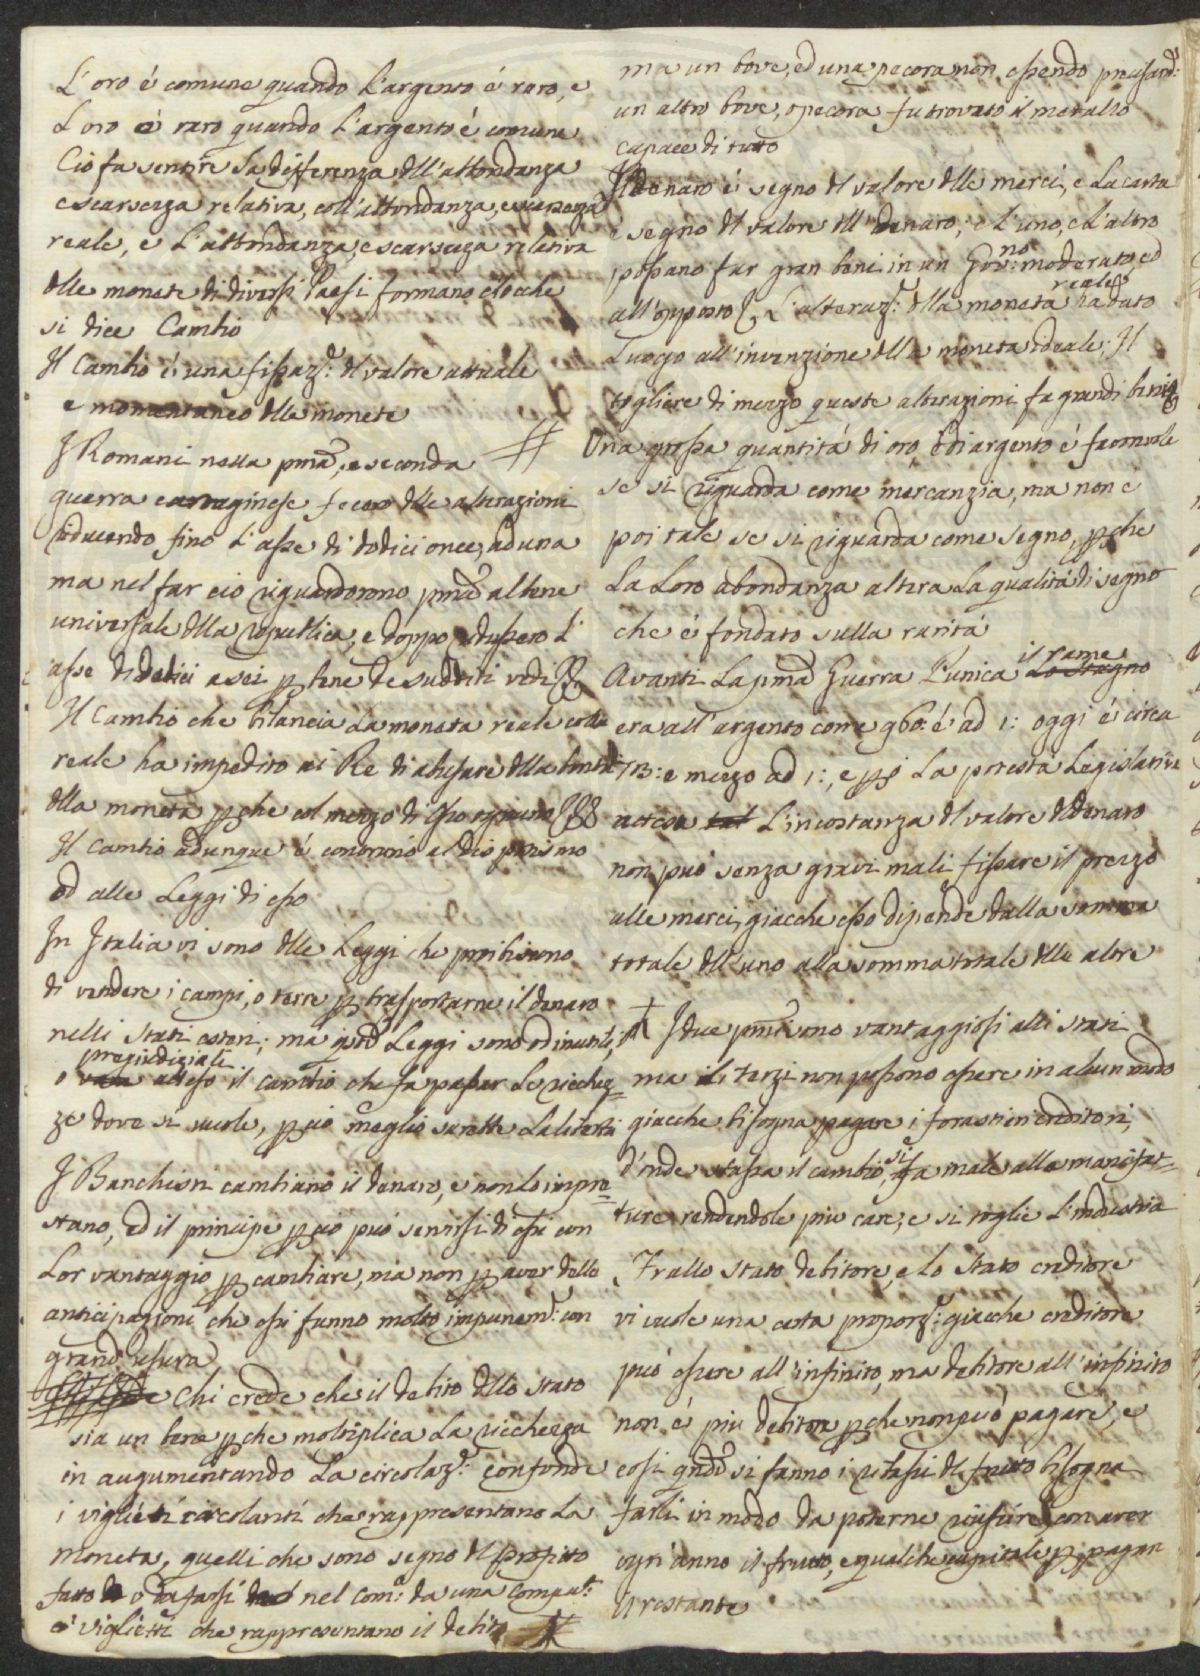 L'oro é comune quando l'argento é raro, e
L'oro é raro quando l'argento é comune
Ció fa sentire la differenza dll'abbondanza
e scarsezza relativa, coll'abbondanza, e scarsezza
reale, e l'abbondanza, e scarsezza relativa
dlle monete di diversi Paesi formano ció che
si dice Cambio
Il Cambio é una fissaz.e dl valore attuale
e momentaneo dlle monete
I Romani nella pma, e seconda
guerra cartaginese fecero dlle alterazioni
riducendo fino l'asse di dodici once, ad una
ma nel far ció riguardorono pma al bene
universale dlla republica, e doppo ridussero l'
asse di dodici a sei p bene de sudditi vedi
Il Cambio che bilancia la moneta reale colla
reale ha impedito ai Re di abusare dlla bontá
dlla moneta p che col mezzo di
Il Cambio adunque é contrario al dispotismo
ed alle Leggi di esso
In Italia vi sono dlle Leggi che proibiscono
di vendere i campi, o terre p trasportarne il denaro
nelli stati esteri; ma qste Leggi sono od inutili,
pregiudiziali
o atteso il cambio che fa passar le ricchez=
ze dove si vuole, p ció meglio sarebbe la libertá
I Banchieri cambiano il denaro, e non lo impre=
stano, ed il principe p ció puó servirsi di essi con
Lor vantaggio p cambiare, ma non p aver delle
anticipazioni che essi fanno molto impunem.e con
grand'usura
Chi crede che il debito dllo stato
sia un bene p che moltiplica la ricchezza
in augumentando la circolaz.e confonde
i viglietti circolanti che rappresentano la
moneta, quelli che sono segno dl profitto
fatto o da farsi nel com.o da una Compa.a
e viglietti che rappresentano il debito #
ma un bove, ed una pecora non essendo
un altro bove, o pecora fu trovato il metallo
capace di tutto
Il denaro é segno dl valore dlle merci, e la carta
é segno dl valore dll'denaro, e l'uno, e l'altro
possano far gran beni in un Gov.no moderato, ed
reale
all'opposto L'alteraz.e dlla moneta ha dato
Luogo all'invenzione dlla moneta ideale; Il
togliere di mezzo queste alterazioni fa grandi beni
# Una grossa quantitá di oro, e di argento é favorevole
se si riguarda come mercanzia, ma non é
poi tale se si riguarda come segno, p che
La Loro abondanza altera la qualitá di segno
che é fondato sulla raritá
il rame
Avanti la pma Guerra Punica lo stagno
era all'argento come 960: é ad 1: oggi é circa
73: e mezzo ad 1:, e p ció La potestá Legislativa
attesa L'incostanza dl valore dl denaro
non puó senza gravi mali fissare il prezzo
alle merci, giacche esso dipende dalla somma
totale dll'uno alla somma totale dlle altre
# I due pmi sono vantaggiosi alli stati
ma ili terzi non possono essere in alcun modo
giacche bisogna pagare i forastieri creditori,
d'onde s'abassa il cambio, si fa male alle manifat=
ture rendendole piu care, e si toglie l'industria
Frallo stato debitore, e lo stato creditore
vi vuole una certa proporz.e giacche creditore
puó essere all'infinito, ma debitore all'infinito
non é piu debitore p che non puó pagare, e
cosi qndo si fanno i ribassi dl frutto bisogna
farli in modo da poterne riuscire, con aver
ogn'anno il frutto, e qualche capitale p pagare
il restante